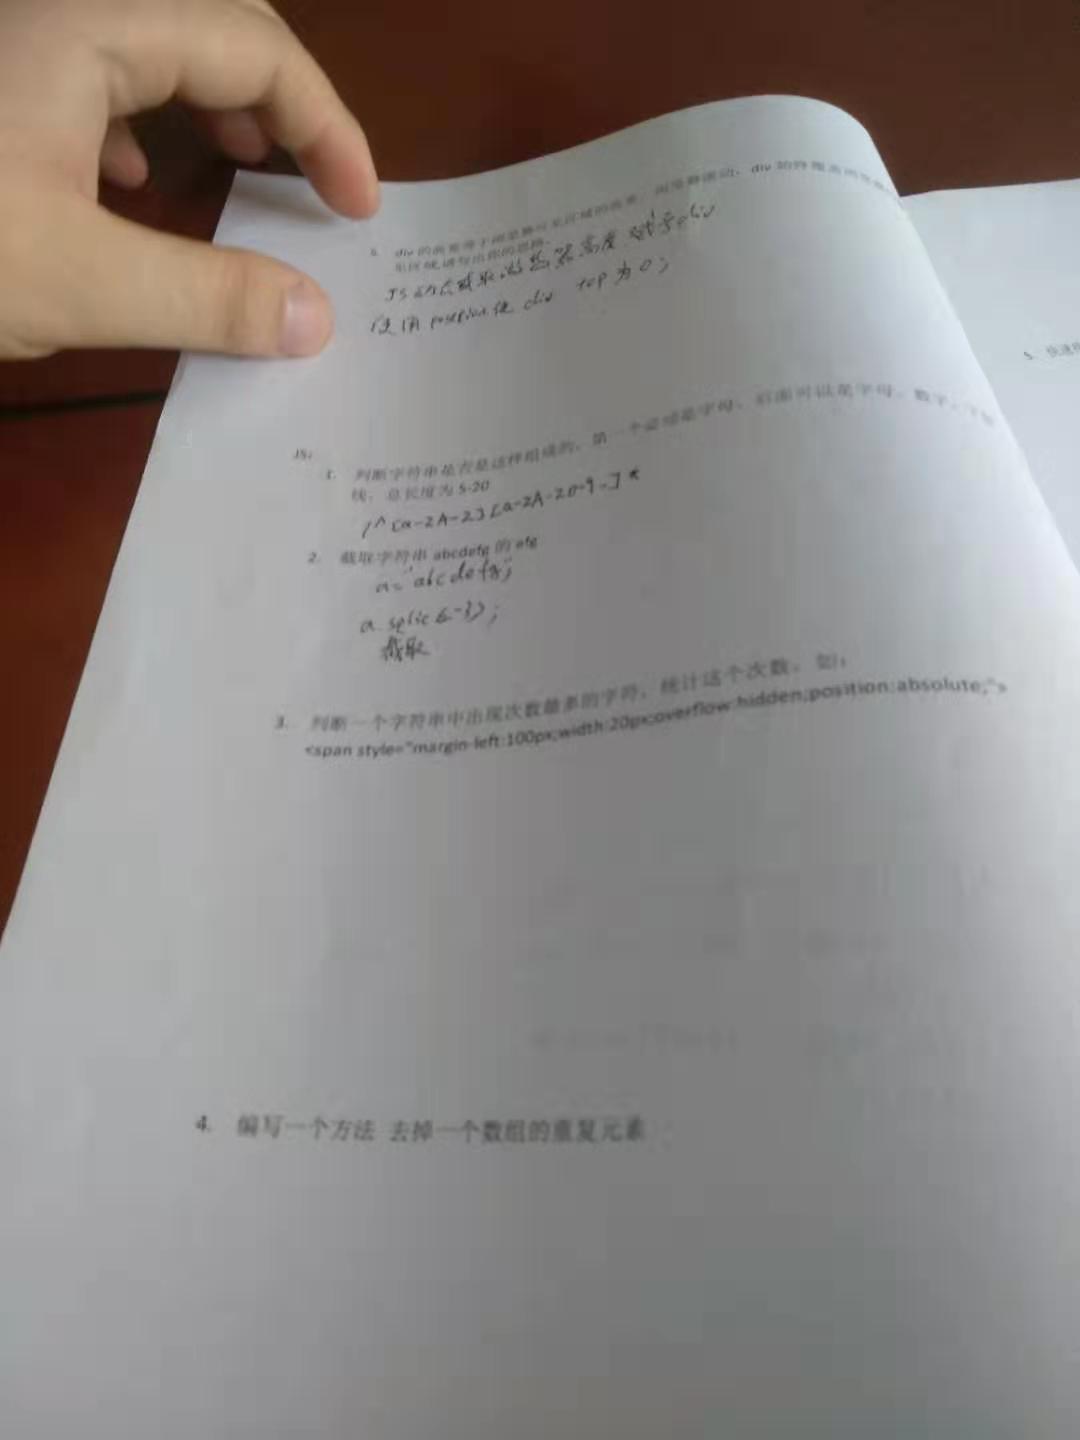 div 的高度等于浏览器可见区域的高度，浏览器滚动，div 始终覆盖浏览器
见区域,请写出你的思路.
JS动态获取浏览器高度 赋予div
使用 position使 div top 为 0;
5. 快速
JS:
1. 判断字符串是否是这样组成的，第一个必须是字母，后面可以是字母、数字、下划
线，总长度为 5-20
/^[a-zA-Z][a-zA-Z0-9_]*
2. 截取字符串 abcdefg 的 efg
a="abcdefg";
a.splice(-3);
截取
3. 判断一个字符串中出现次数最多的字符，统计这个次数，如：
<span style="margin-left:100px;width:20px;overflow:hidden;position:absolute;">
4. 编写一个方法 去掉一个数组的重复元素